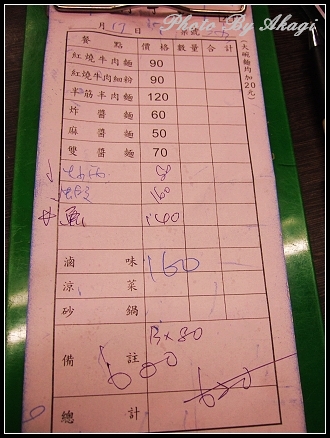 Photo By Akagi
月 17
餐點 價格 數量 合計
紅燒牛肉麵 90
紅燒牛肉細粉 90
半筋半肉麵 120
炸醬麵 60
麻醬麵 50
雙醬麵 70
(大碗麵均加20元)
80
160
魚 140
滷味 160
涼菜
砂鍋
備註
600
總計